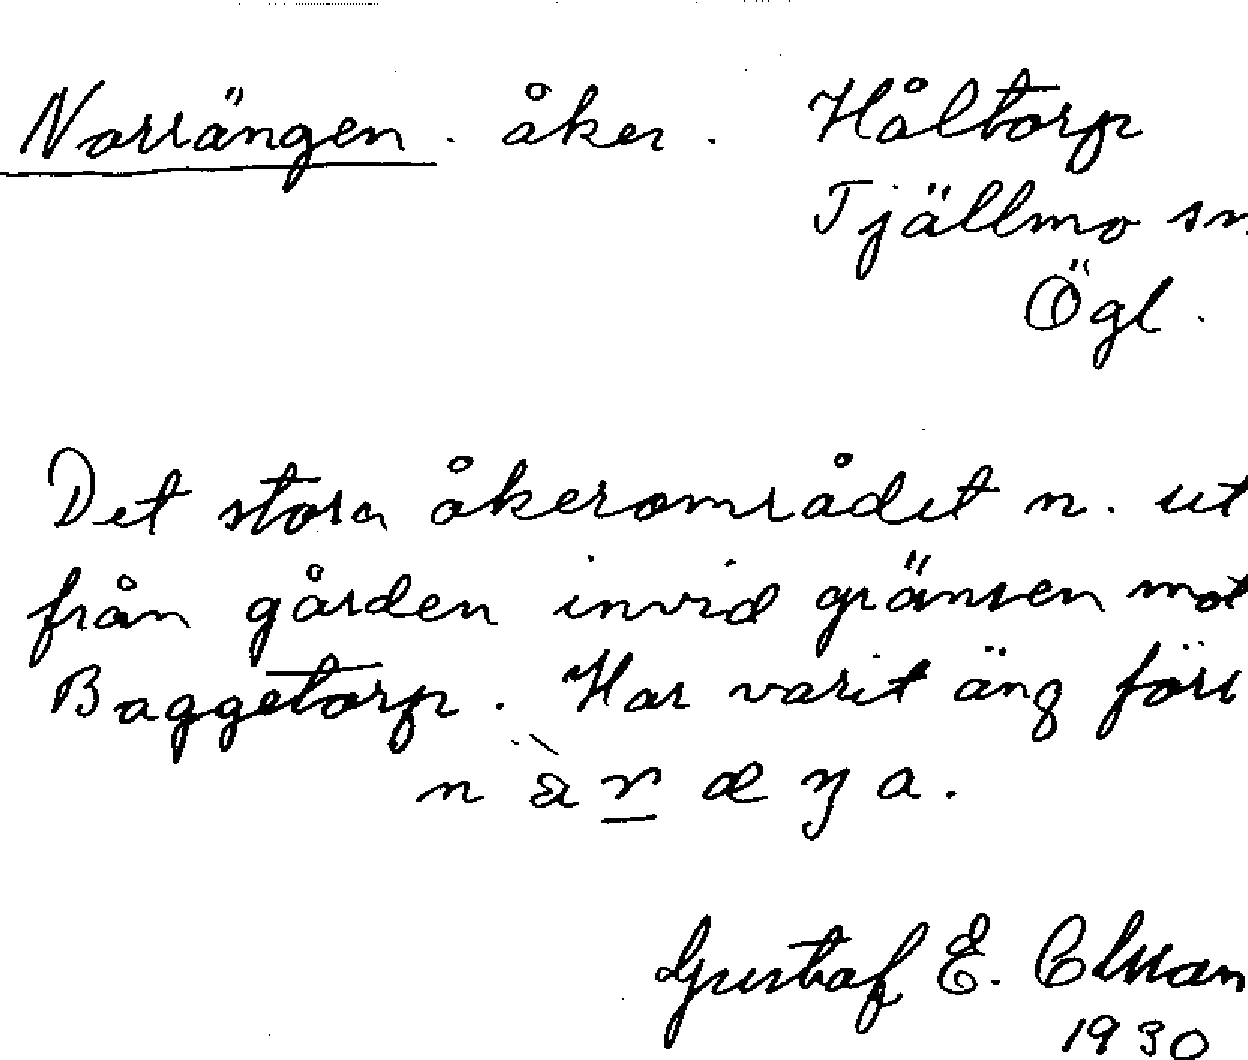 Norrängen. åker. Håltorp
Tjällmo sn
Ögl.
Det stora åkerområdet n. ut
från gården invid gränsen mot
Baggetorp. Har varit äng förr
Gustaf E.
1930